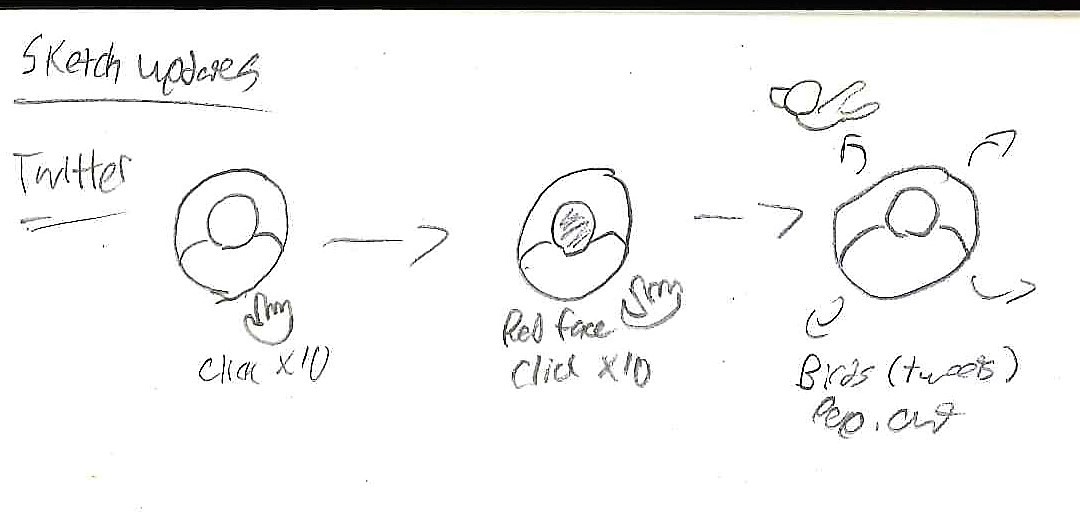 Sketch updates
Twitter
click x10
Red face
click x10
Birds (tweets)
Pop out